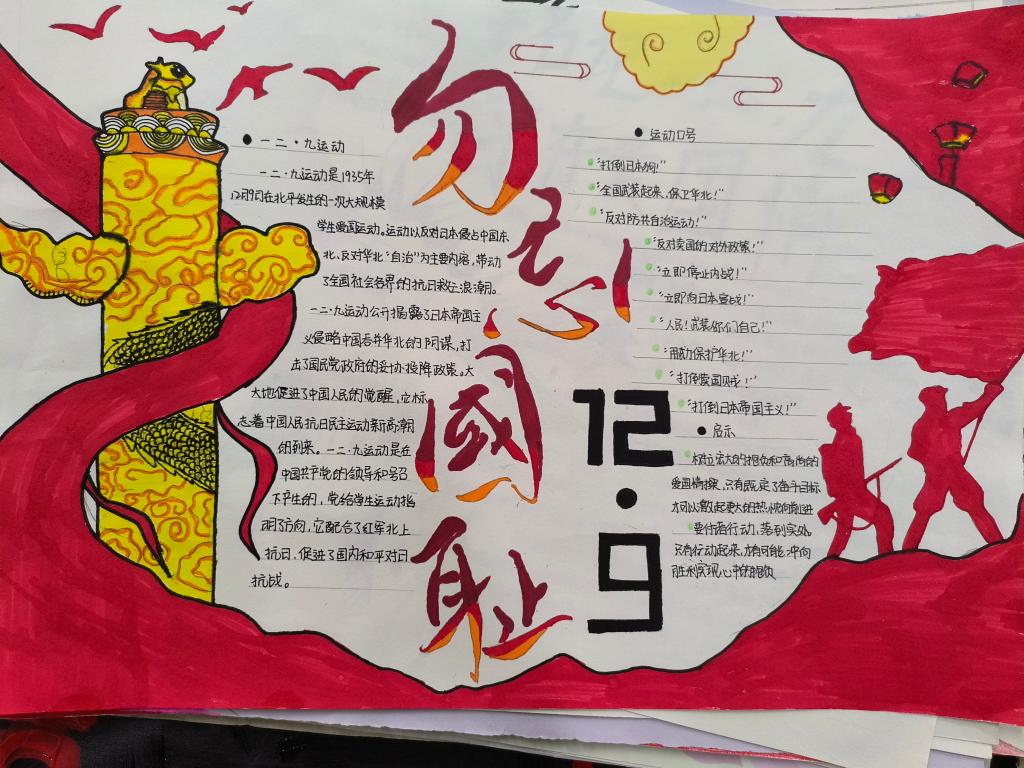 一二·九运动
一二·九运动是1935年
12月9日在北平发生的一次大规模
学生爱国运动。运动以反对日本侵占中国东
北、反对华北"自治"为主要内容,带动
了全国社会各界的抗日救亡浪潮。
一二·九运动公开揭露了日本帝国主
义侵略中国吞并华北的阴谋,打
击了国民党政府的妥协投降政策。大
大地促进了中国人民的觉醒,它标
志着中国人民抗日民主运动新高潮
的到来。一二·九运动是在
中国共产党的领导和号召
下产生的,党给学生运动指
明了方向,它配合了红军北上
抗日,促进了国内和平对日
抗战。
勿
忘
國
恥
运动口号
"打倒日本狗!"
"全国武装起来,保卫华北!"
"反对防共自治运动!"
"反对卖国的对外政策!"
"立即停止内战!"
"立即向日本宣战!"
"人民!武装你们自己!"
"用勋保护华北!"
"打倒爱国贼!"
"打倒日本帝国主义!"
12
·
9
启示
树立宏大的抱负和高尚的
爱国情操,只有既定了奋斗目标
才可以激起更大的热忱向前进
要付诸行动,落到实处
只有行动起来,才有可能冲向
胜利实现心中的抱负